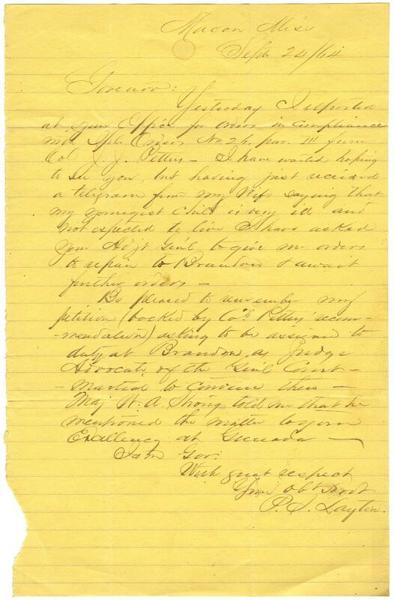 Macon Miss
Sept 24/64
Governor:
Yesterday I reported
at your Office for orders in compliance
with Spl. Orders No 26, par. III from
Col J. J. Pettus - I have waited hoping
to see you, but having just received
a telegram from my Wife saying that
my youngest Child is very ill and
not expected to live I have asked
your Adjt Genl, to give me orders
to repair to Brandon & await
further orders -
Be pleased to remember my
petition (backed by Col Pettus' recom-
mendation) asking to be assigned to
duty at Brandon, as Judge
Advocate of the Genl Court-
Martial to convene there -
Maj W. A. Strong told me that he
mentioned the matter to your
Excellency at Grenada -
I am Gov:
With great respect
Your Obt Svt
P. S. Layton